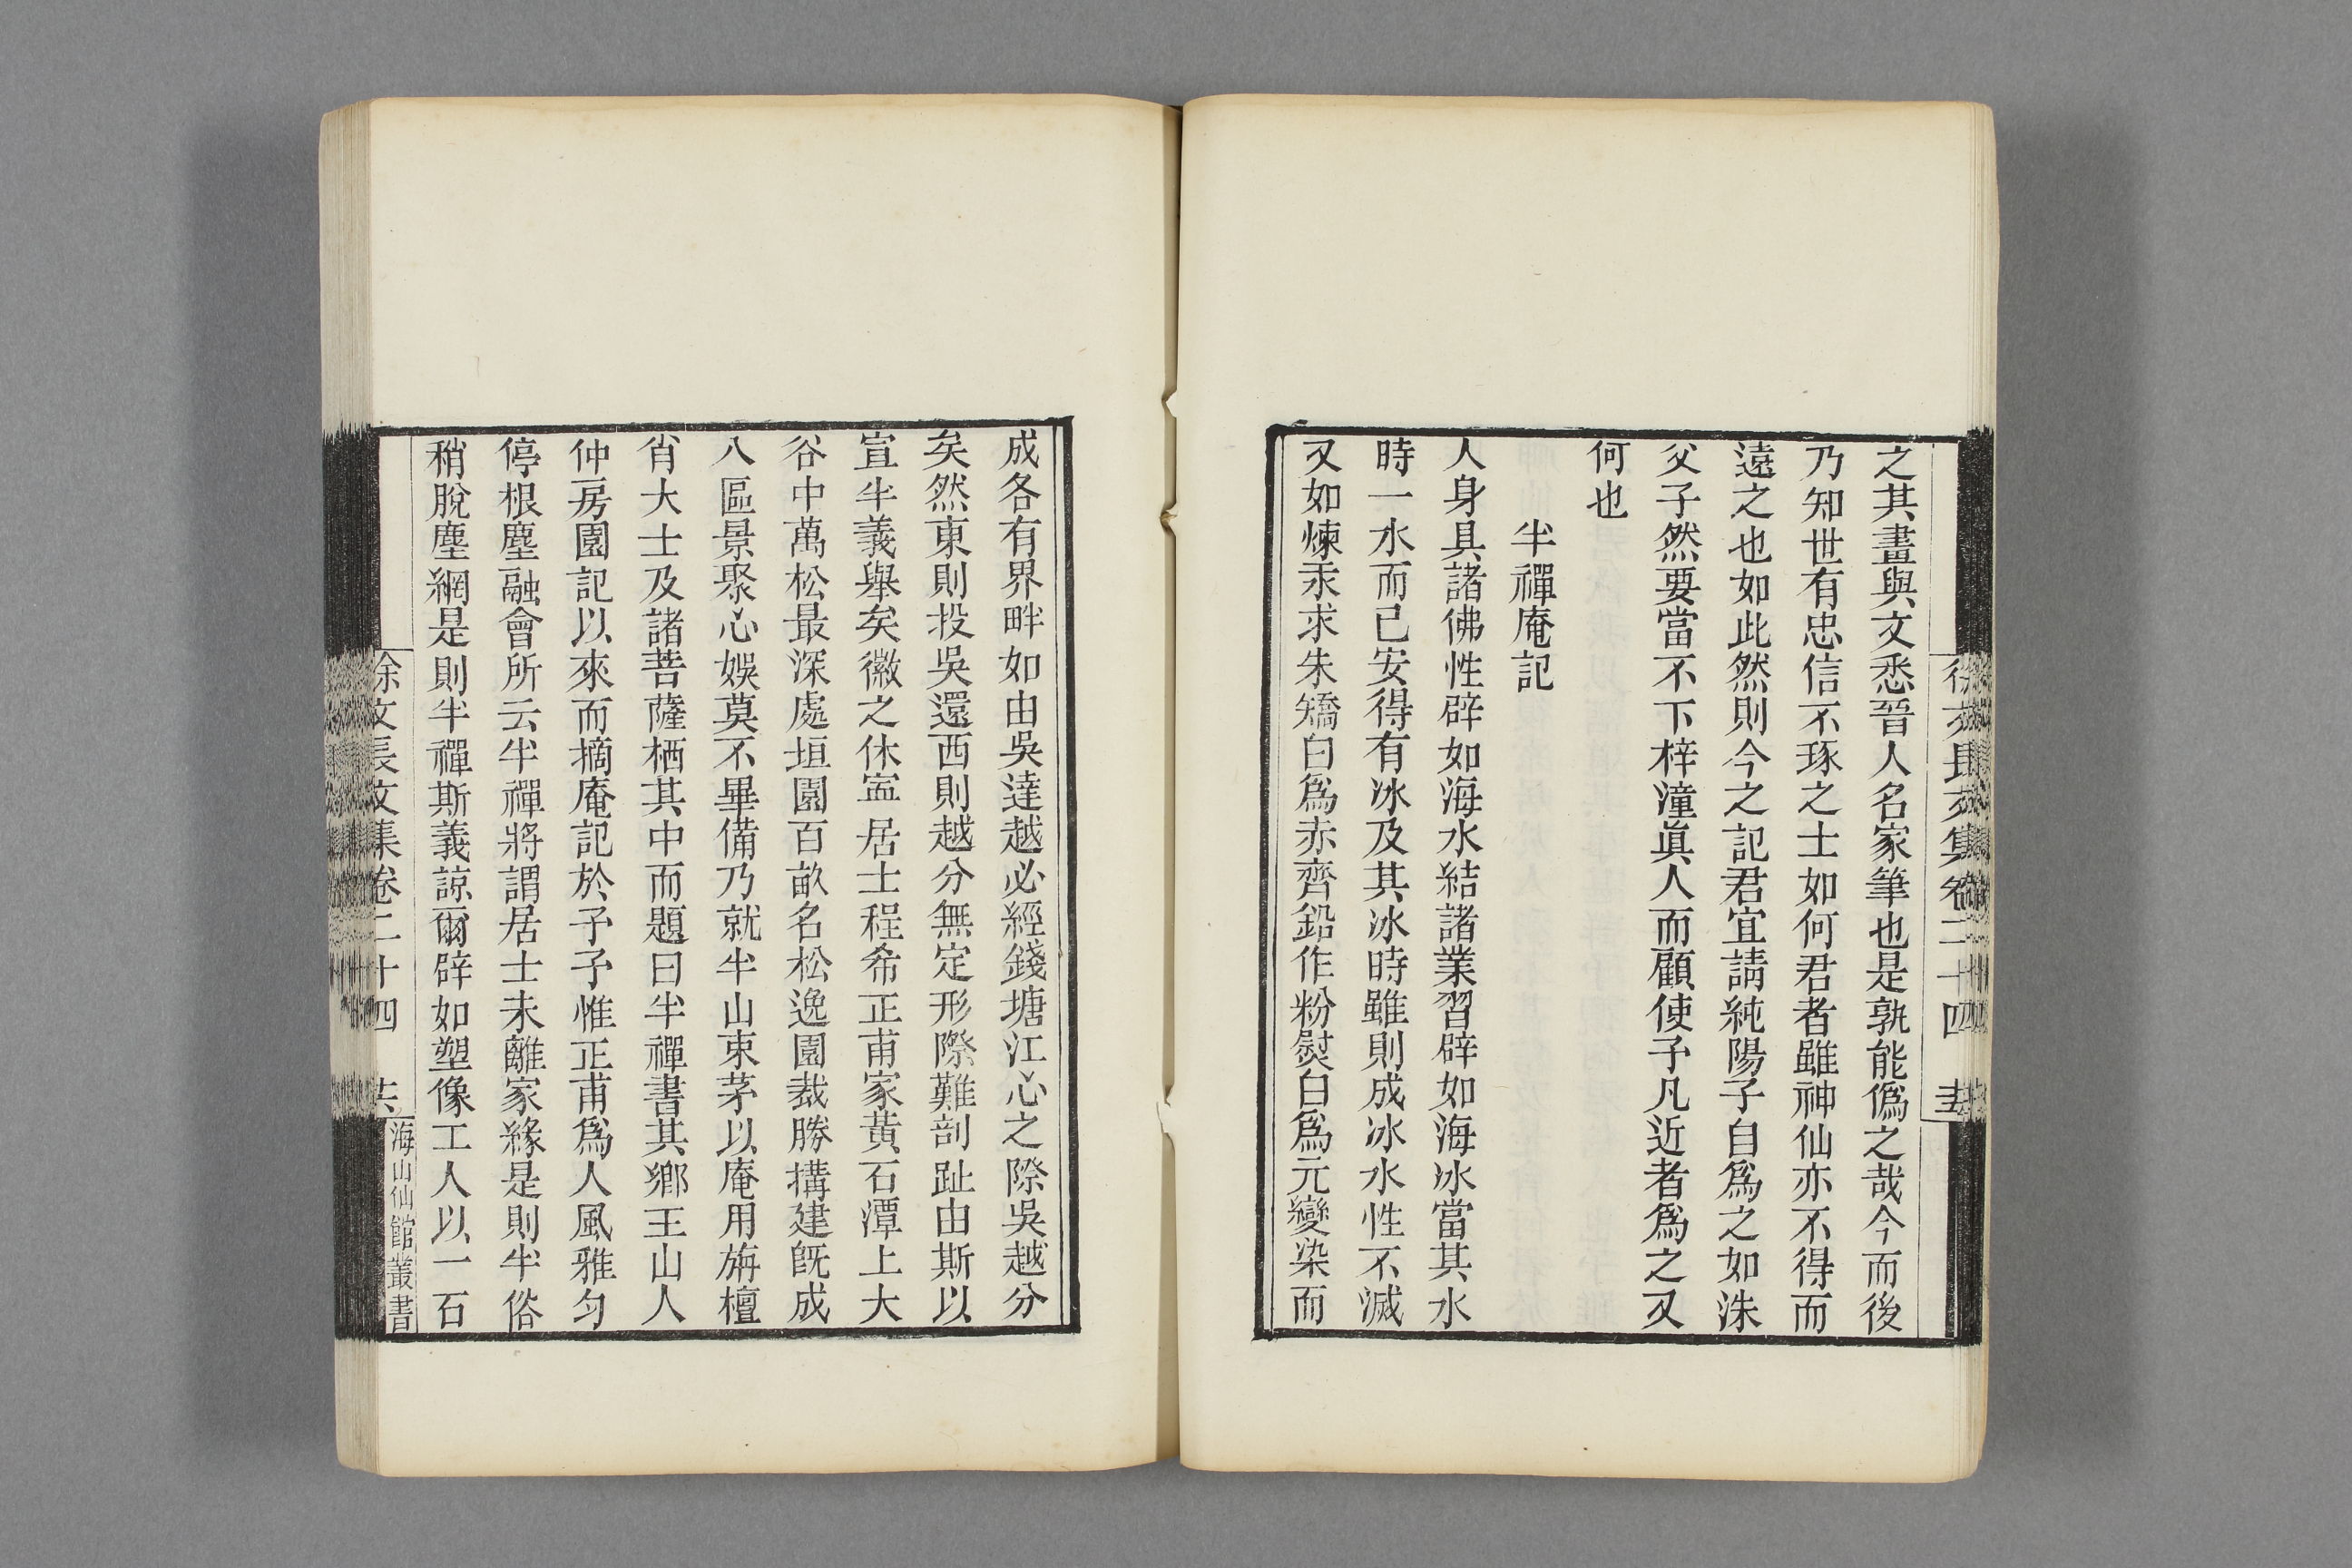 之其畫與文悉晉人名家筆也是孰能僞之哉今而後
乃知世有忠信不琢之士如何君者雖神仙亦不得而
遠之也如此然則今之記君宜請純陽子自爲之如洙
父子然要當不下梓潼眞人而顧使予凡近者爲之又
何也
半禪庵記
人身具諸佛性辟如海水結諸業習辟如海冰當其水
時一水而已安得有冰及其冰時雖則成冰水性不滅
又如煉汞求朱矯白爲赤齊鉛作粉熨白爲元變染而
成各有界畔如由吳達越必經錢塘江心之際吳越分
矣然東則投吳還西則越分無定形際難剖趾由斯以
宣半義舉矣徽之休寍居士程希正甫家黃石潭上大
谷中萬松最深處垣園百畝名松逸園裁勝搆建旣成
八區景聚心娛莫不畢備乃就半山束茅以庵用旃檀
肖大士及諸菩薩栖其中而題曰半禪書其鄉王山人
仲房園記以來而摘庵記於予予惟正甫爲人風雅匀
停根塵融會所云半禪將謂居士未離家緣是則半俗
稍脫塵網是則半禪斯義諒爾辟如塑像工人以一石
徐文長文集卷二十四
海山仙館叢書